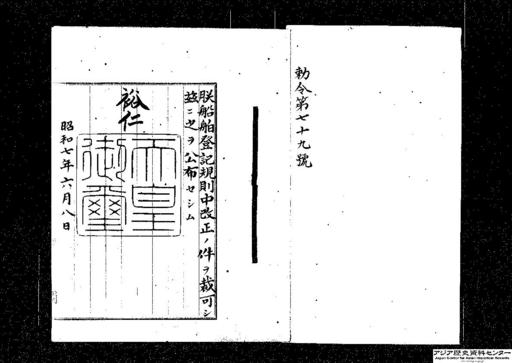 勅令第七十九號
朕船舶登記規則中改正ノ件ヲ裁可シ
茲ニ之ヲ公布セシム
裕仁
天皇御璽
昭和七年六月八日
アジア歴史資料センター
Japan Center for Asian Historical Records